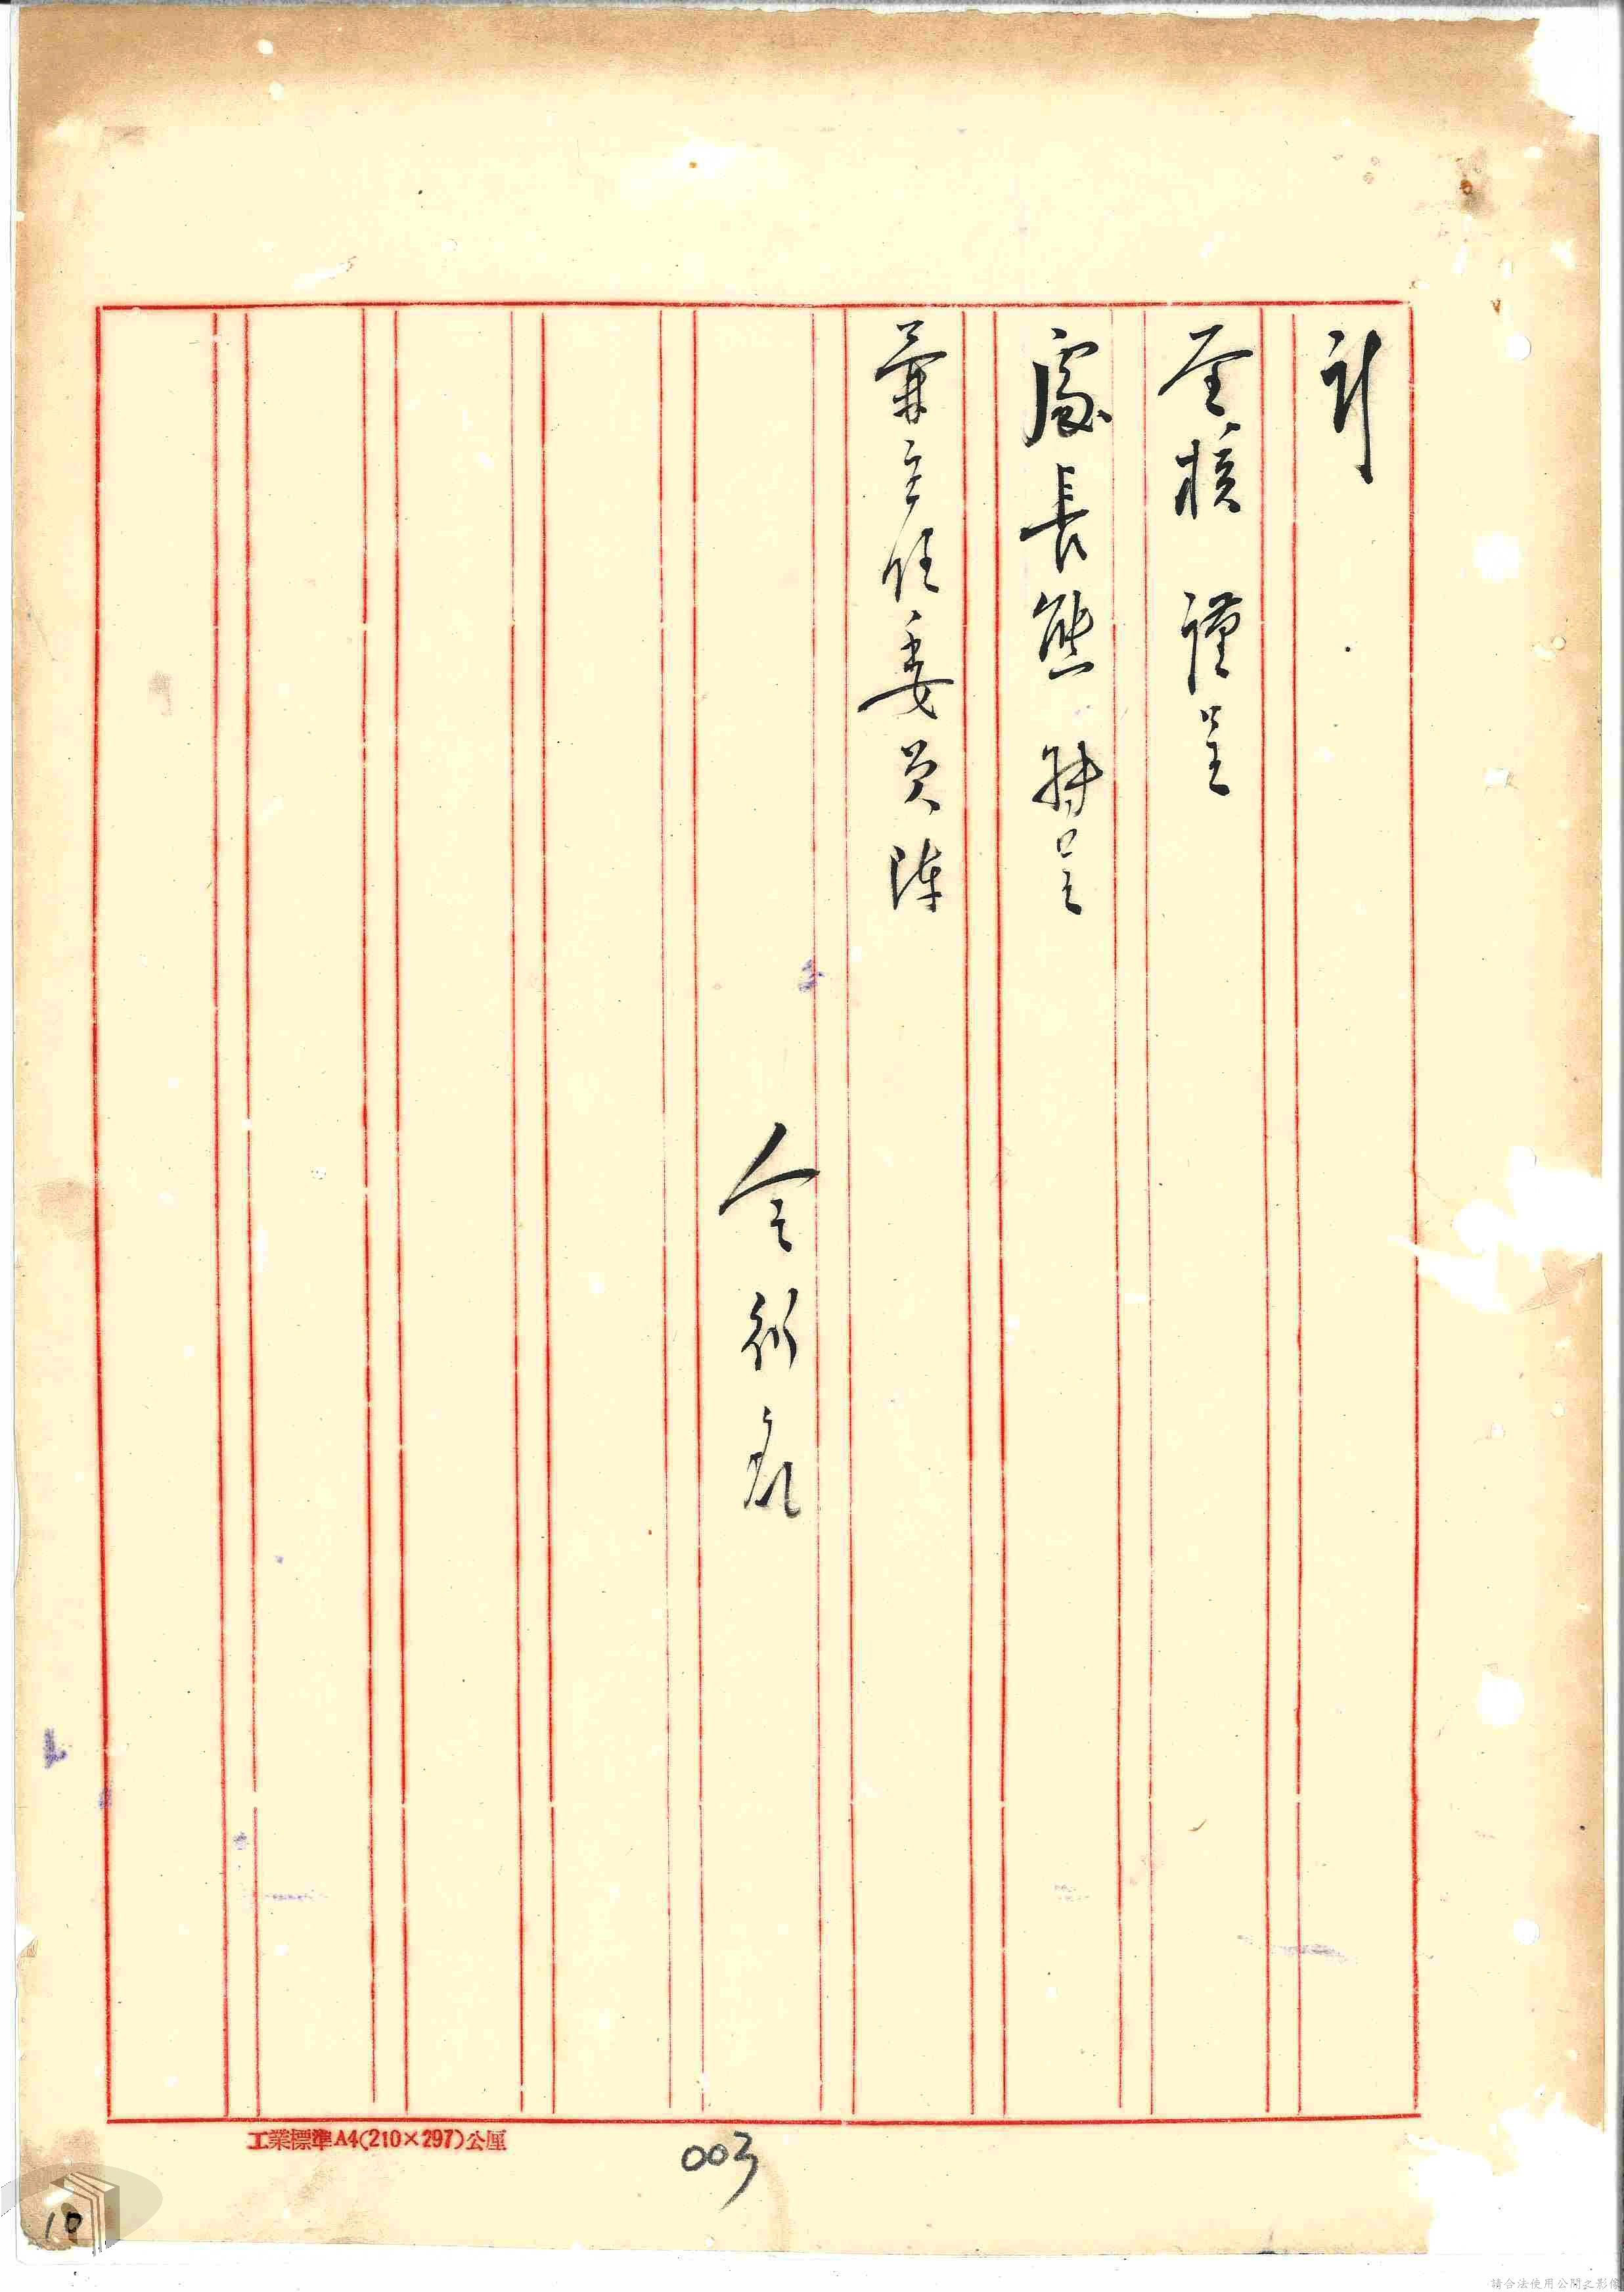 計
奎核 謹呈
處長熊 轉呈
兼主任委員陳
工業標準A4(210×297)公厘
003
10
請合法使用公開之影像